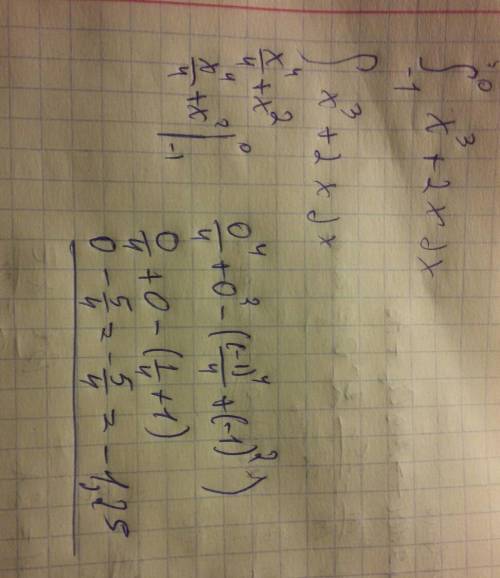 ∫₋₁⁰ x³ + 2x dx
∫ x³ + 2x dx
x⁴/4 + x²
x⁴/4 + x² |₋₁⁰
0⁴/4 + 0² - ((-1)⁴/4 + (-1)²)
0/4 + 0 - (1/4 + 1)
0 - 5/4 = - 5/4 = - 1,25